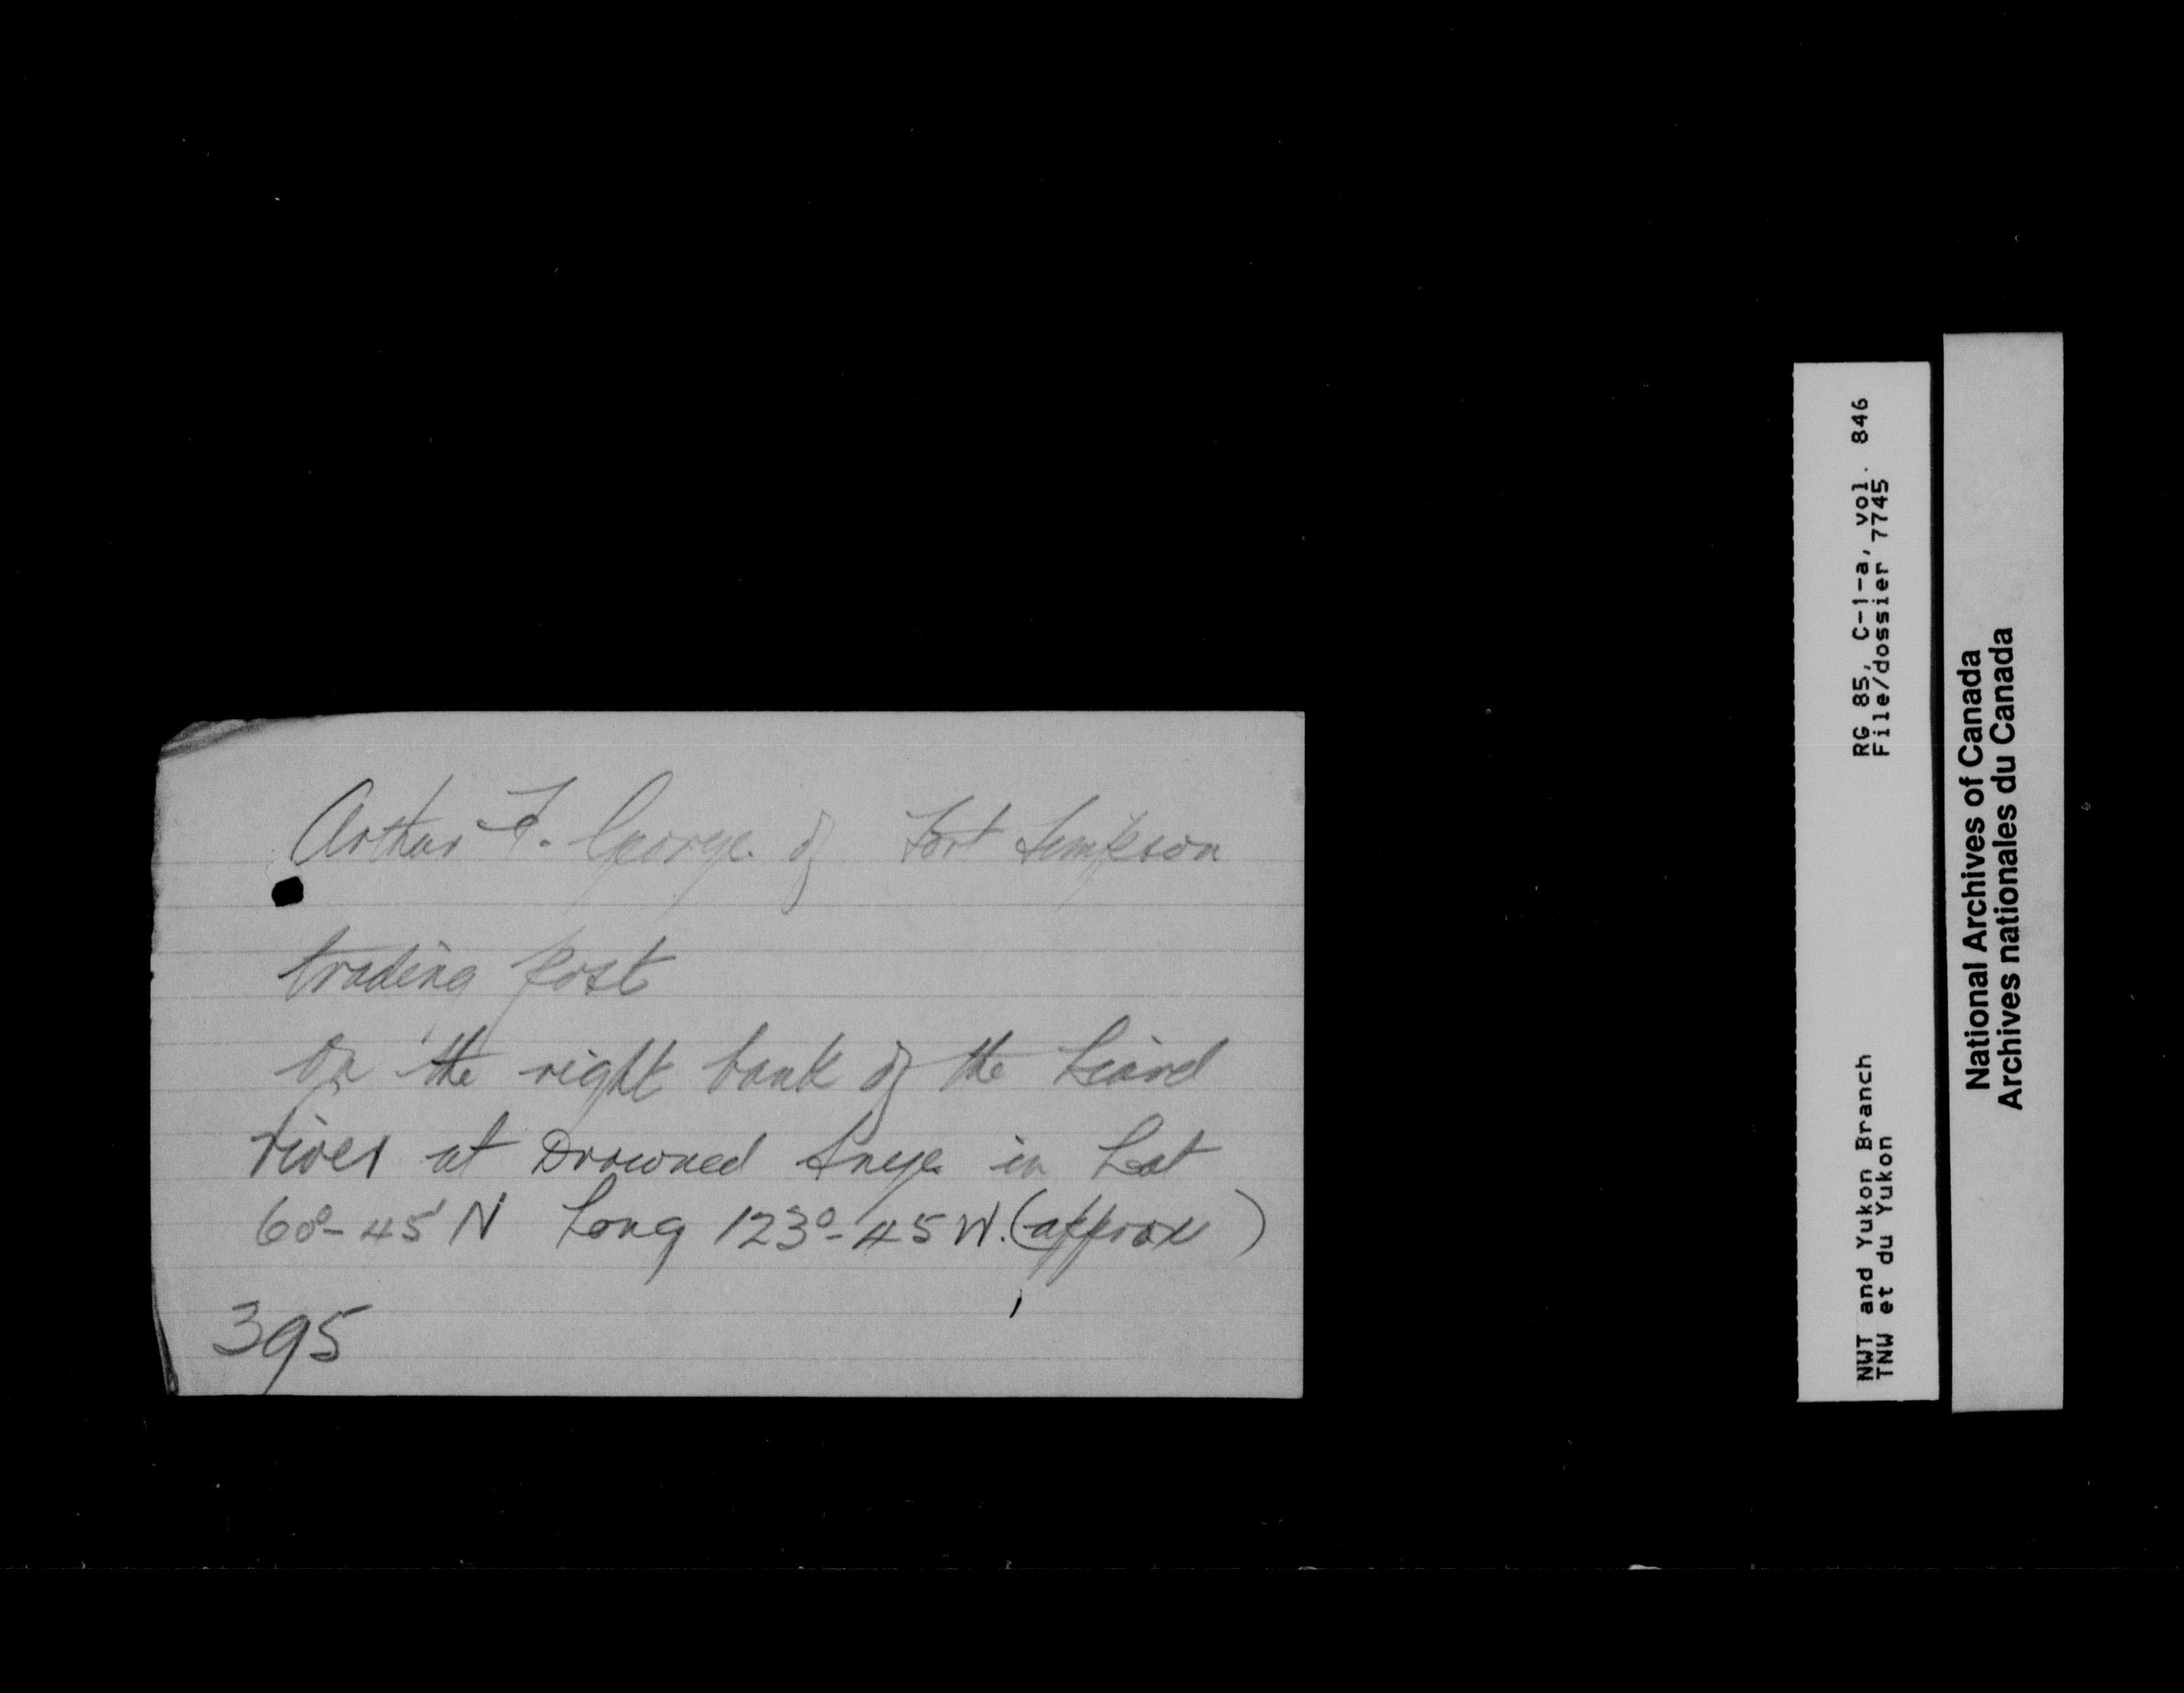 Arthur F. George of Fort Simpson
trading post
On the right bank of the Liard
river at Drowned Snye in Lat
60°-45' N Long 123°-45 W. (approx )
395
RG 85, C-1-a, vol. 846
File/dossier 7745
NWT and Yukon Branch
TNW et du Yukon
National Archives of Canada
Archives nationales du Canada